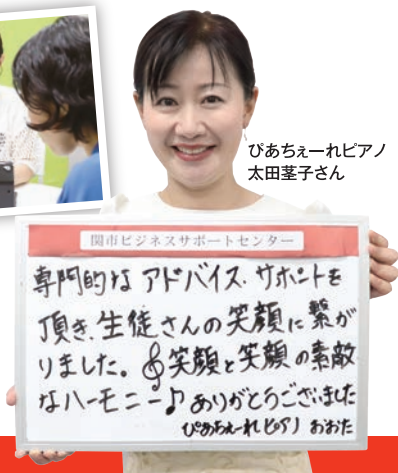 ぴあちぇーれピアノ
太田茎子さん
関市ビジネスサポートセンター
専門的な アドバイス、サポートを
頂き、生徒さんの笑顔に繋が
りました。笑顔と笑顔の素敵
なハーモニー♪ありがとうございました
ぴあちぇーれ ピアノ おおた